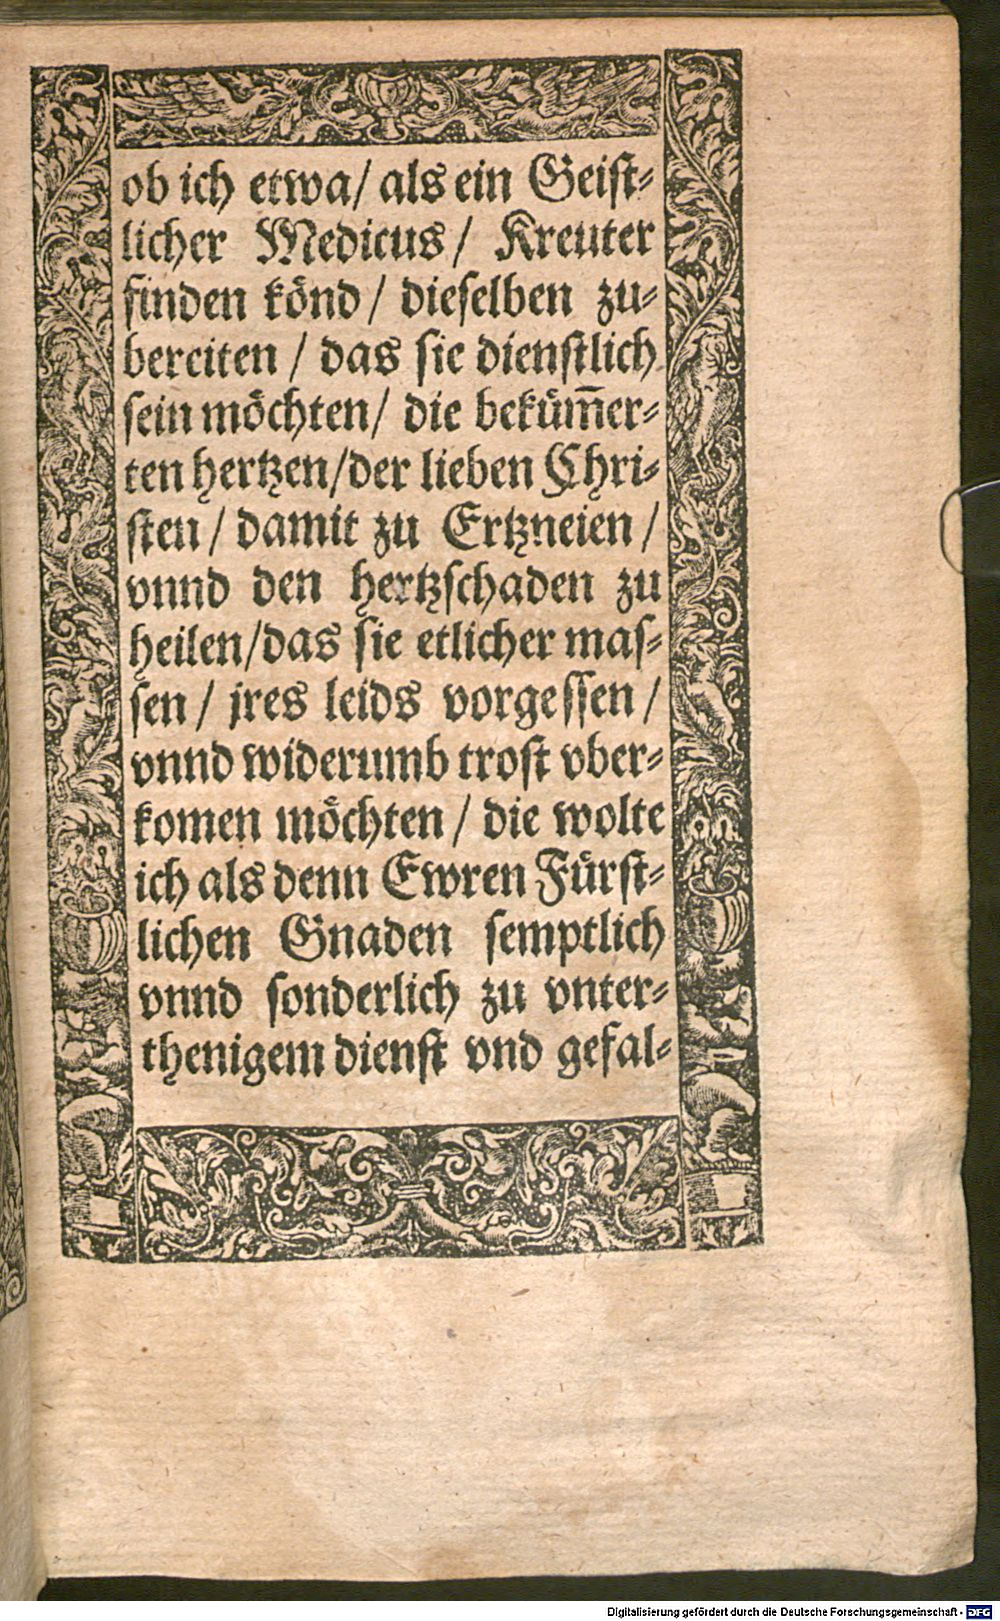 ob ich etwa/ als ein Geiſt⸗
licher Medicus/ Kreuter
finden koͤnd/ dieſelben zu⸗
bereiten/ das ſie dienſtlich
ſein moͤchten/ die bekuͤm̄er⸗
ten hertzen/der lieben Chri⸗
ſten/ damit zu Ertzneien/
vnnd den hertzſchaden zu
heilen/das ſie etlicher maſ⸗
ſen/ jres leids vorgeſſen/
vnnd widerumb troſt vber⸗
komen moͤchten/ die wolte
ich als denn Ewren Fuͤrſt⸗
lichen Gnaden ſemptlich
vnnd ſonderlich zu vnter⸗
thenigem dienſt vnd gefal⸗
Digitalisierung gefördert durch die Deutsche Forschungsgemeinschaft - DFG